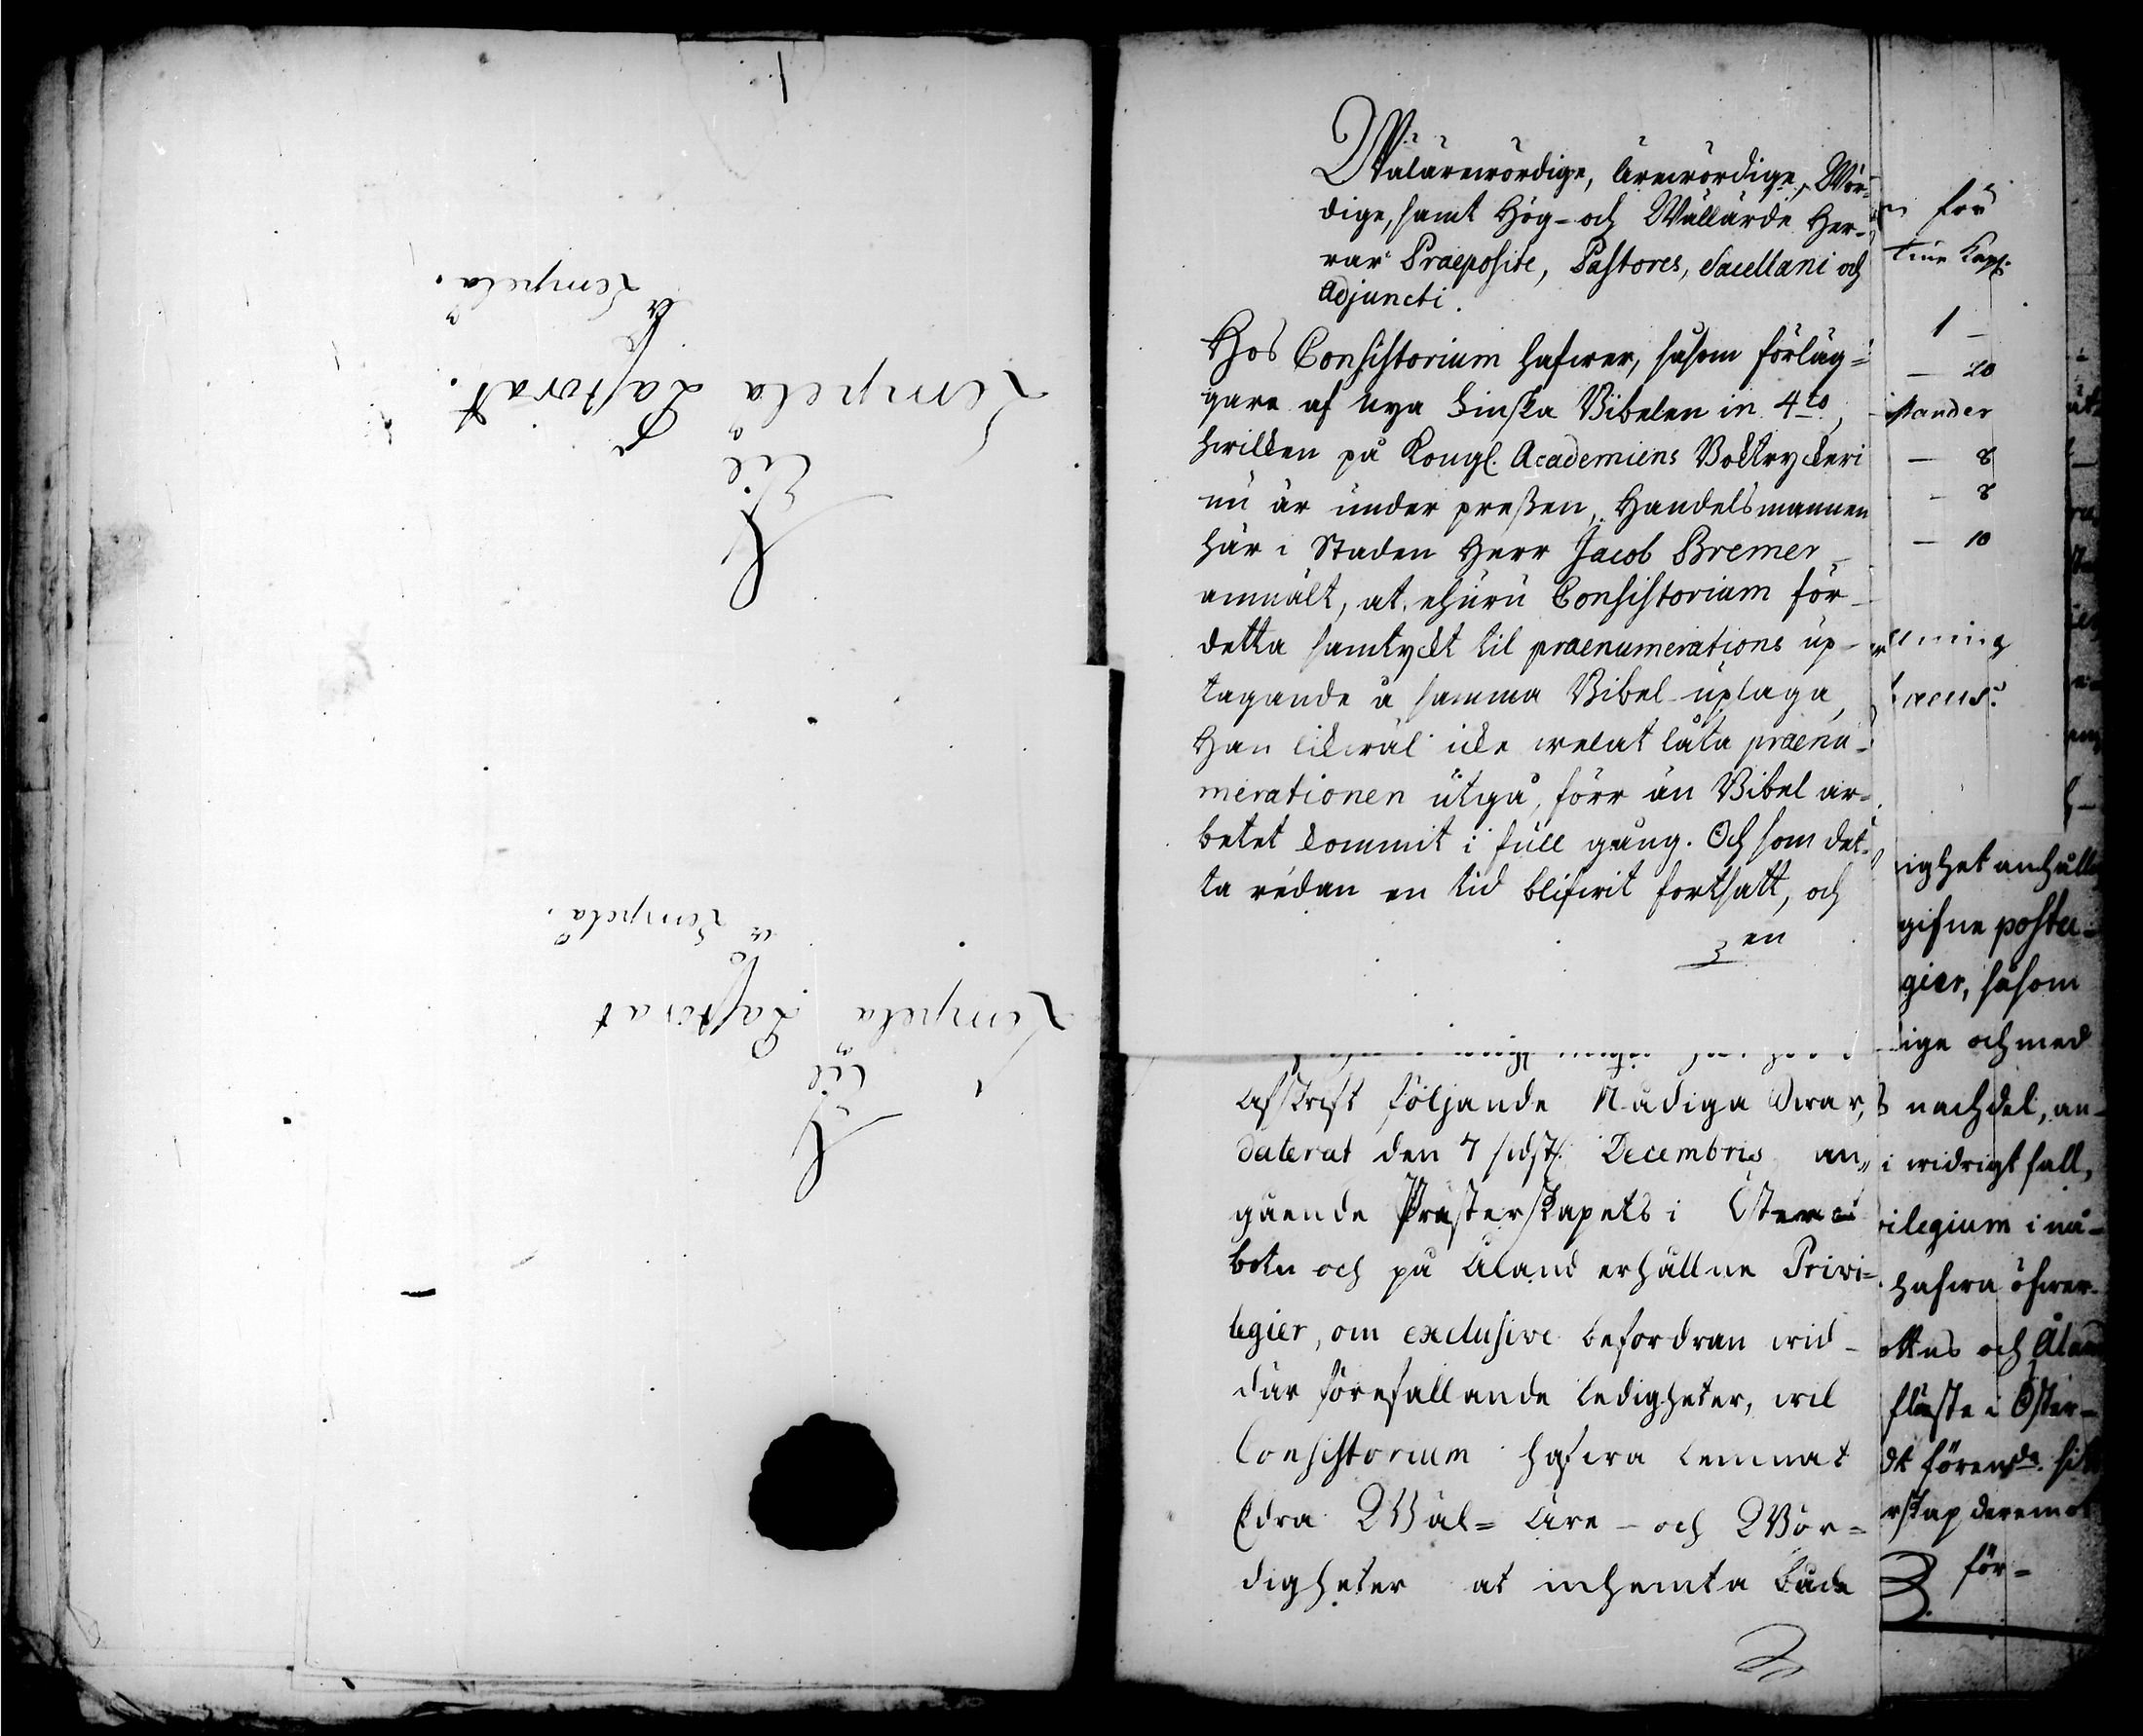 Til
Lempelä Pastorat.
å
Lempelä.
Til
Lempela Pastorat
å
Lempelä.
Wälärewördige, Ärewördige, Wör-
dige, samt Hög- och Wällärde Her-
rar Praeposite, Pastores, Sacellani och
Adjuncti.
Hos Consistorium hafwer, såsom förläg-
gare af nya Finska Bibelen in 4to,
hwilken på Kongl. Academiens Boktryckeri
nu är under preßen, Handelsmannen
här i Staden Herr Jacob Bremer
anmält, at ehuru Consistorium för
detta samtyckt til praenumerations up-
tagande å samma Bibel-uplaga,
Han likwäl icke welat låta praenu-
merationen utgå, förr än Bibel ar-
betet kommit i full gång. Och som det-
ta redan en tid blifwit fortsatt, och
en
Afskrift följande Nådiga Swar,
daterat den 7 sidstl. Decembris an-
gående Prästerskapets i Österå
botn och på Åland erhållne Privi-
legier, om exclusive befordran wid
där förefallande ledigheter, wil
Consistorium hafwa lemnat
Edra Wäl- Äre- och Wör-
digheter at inhemta både
för
tine Kap.
1 -
- 20
stander
- 8
- 8
- 10
ighet anhålle
gifne postu-
gier, såsom
lige och med
nachdel, an-
i widrigt fall,
ilegium i nå-
hafwa öfwer-
ottns och Åland
fläste i Öster-
dt förends. sit
rskap deremot
för-